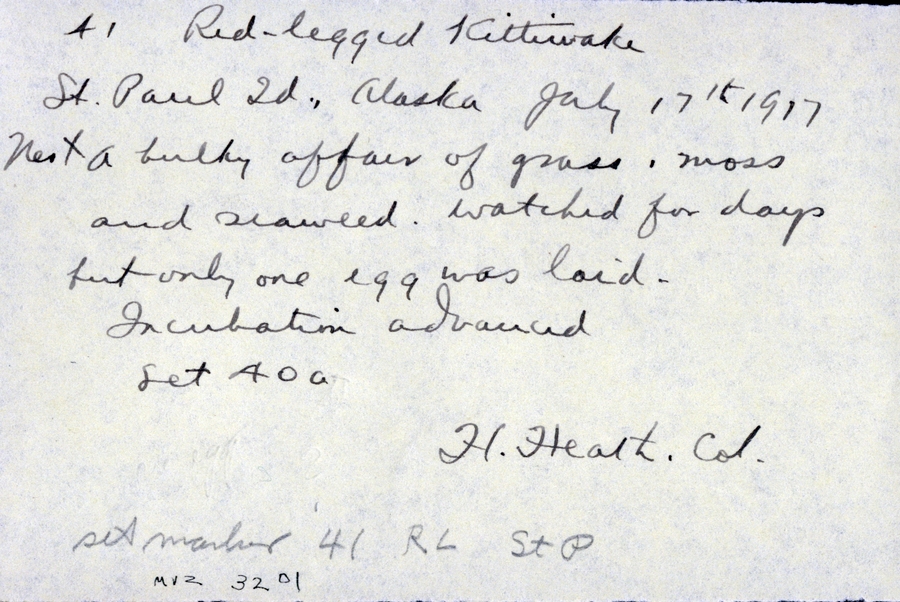 41 Red-legged Kittiwake
St. Paul Id., Alaska July 17th 1917
Nest a bulky affair of grass, moss
and seaweed. Watched for days
but only one egg was laid.
Incubation advanced
Set 40a
H. Heath. Col.
set marked 41 RL St P
MVZ 3201